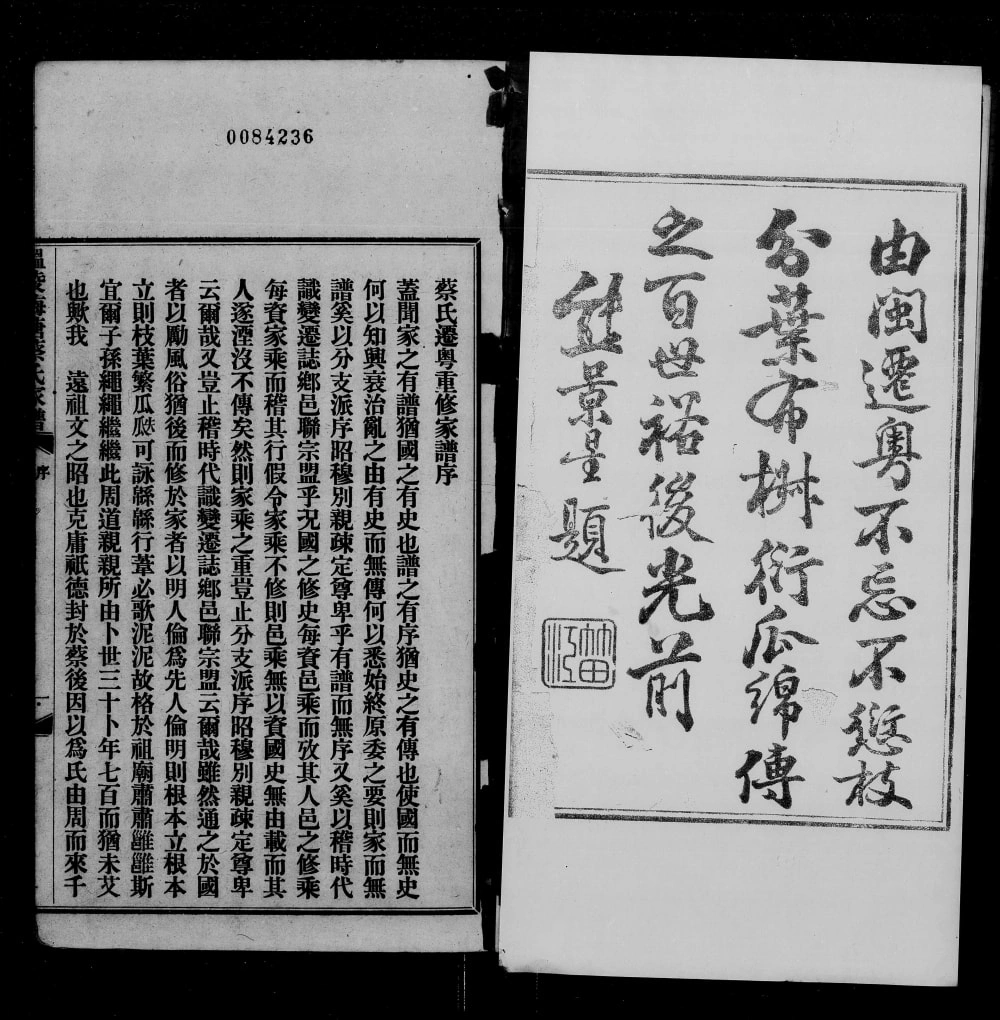 由閩遷粵不忘不愆枝
分葉布椒衍瓜綿傳
之百世裕後光前
熊景星題
0084236
蔡氏遷粵重修家譜序
蓋聞家之有譜猶國之有史也譜之有序猶史之有傳也使國而無史
何以知興衰治亂之由有史而無傳何以悉始終原委之要則家而無
譜奚以分支派序昭穆別親疎定尊卑乎有譜而無序又奚以稽時代
識變遷誌鄉邑聯宗盟乎况國之修史每資邑乘而攷其人邑之修乘
每資家乘而稽其行假令家乘不修則邑乘無以資國史無由載而其
人遂湮沒不傳矣然則家乘之重豈止分支派序昭穆別親疎定尊卑
云爾哉又豈止稽時代識變遷誌鄉邑聯宗盟云爾哉雖然通之於國
者以勵風俗猶後而修於家者以明人倫爲先人倫明則根本立根本
立則枝葉繁瓜瓞可詠緜緜行葦必歌泥泥故格於祖廟肅肅雝雝斯
宜爾子孫繩繩繼繼此周道親親所由卜世三十卜年七百而猶未艾
也歟我 遠祖文之昭也克庸祇德封於蔡後因以爲氏由周而來千
序